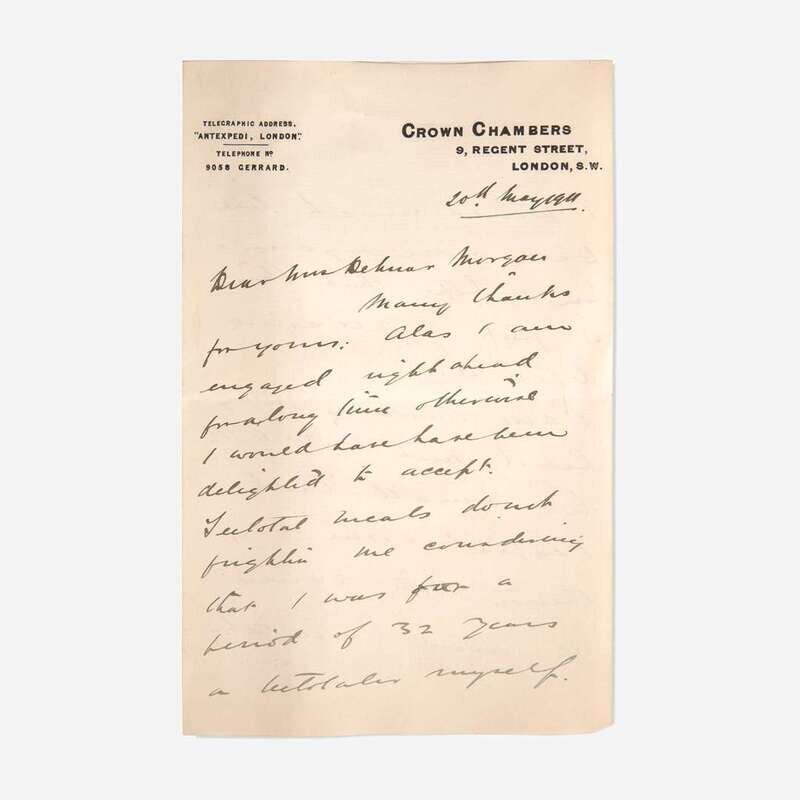 TELEGRAPHIC ADDRESS.
"ANTEXPEDI, LONDON."
TELEPHONE No
9058 GERRARD.
CROWN CHAMBERS
9, REGENT STREET,
LONDON, S.W.
20th May 1911.
Dear Mrs Delmar Morgan
Many thanks
for yours: Alas I am
engaged right ahead
for a long time otherwise
I would have have been
delighted to accept.
Teetotal meals do not
frighten me considering
that I was for a
period of 32 years
a teetotaler myself.